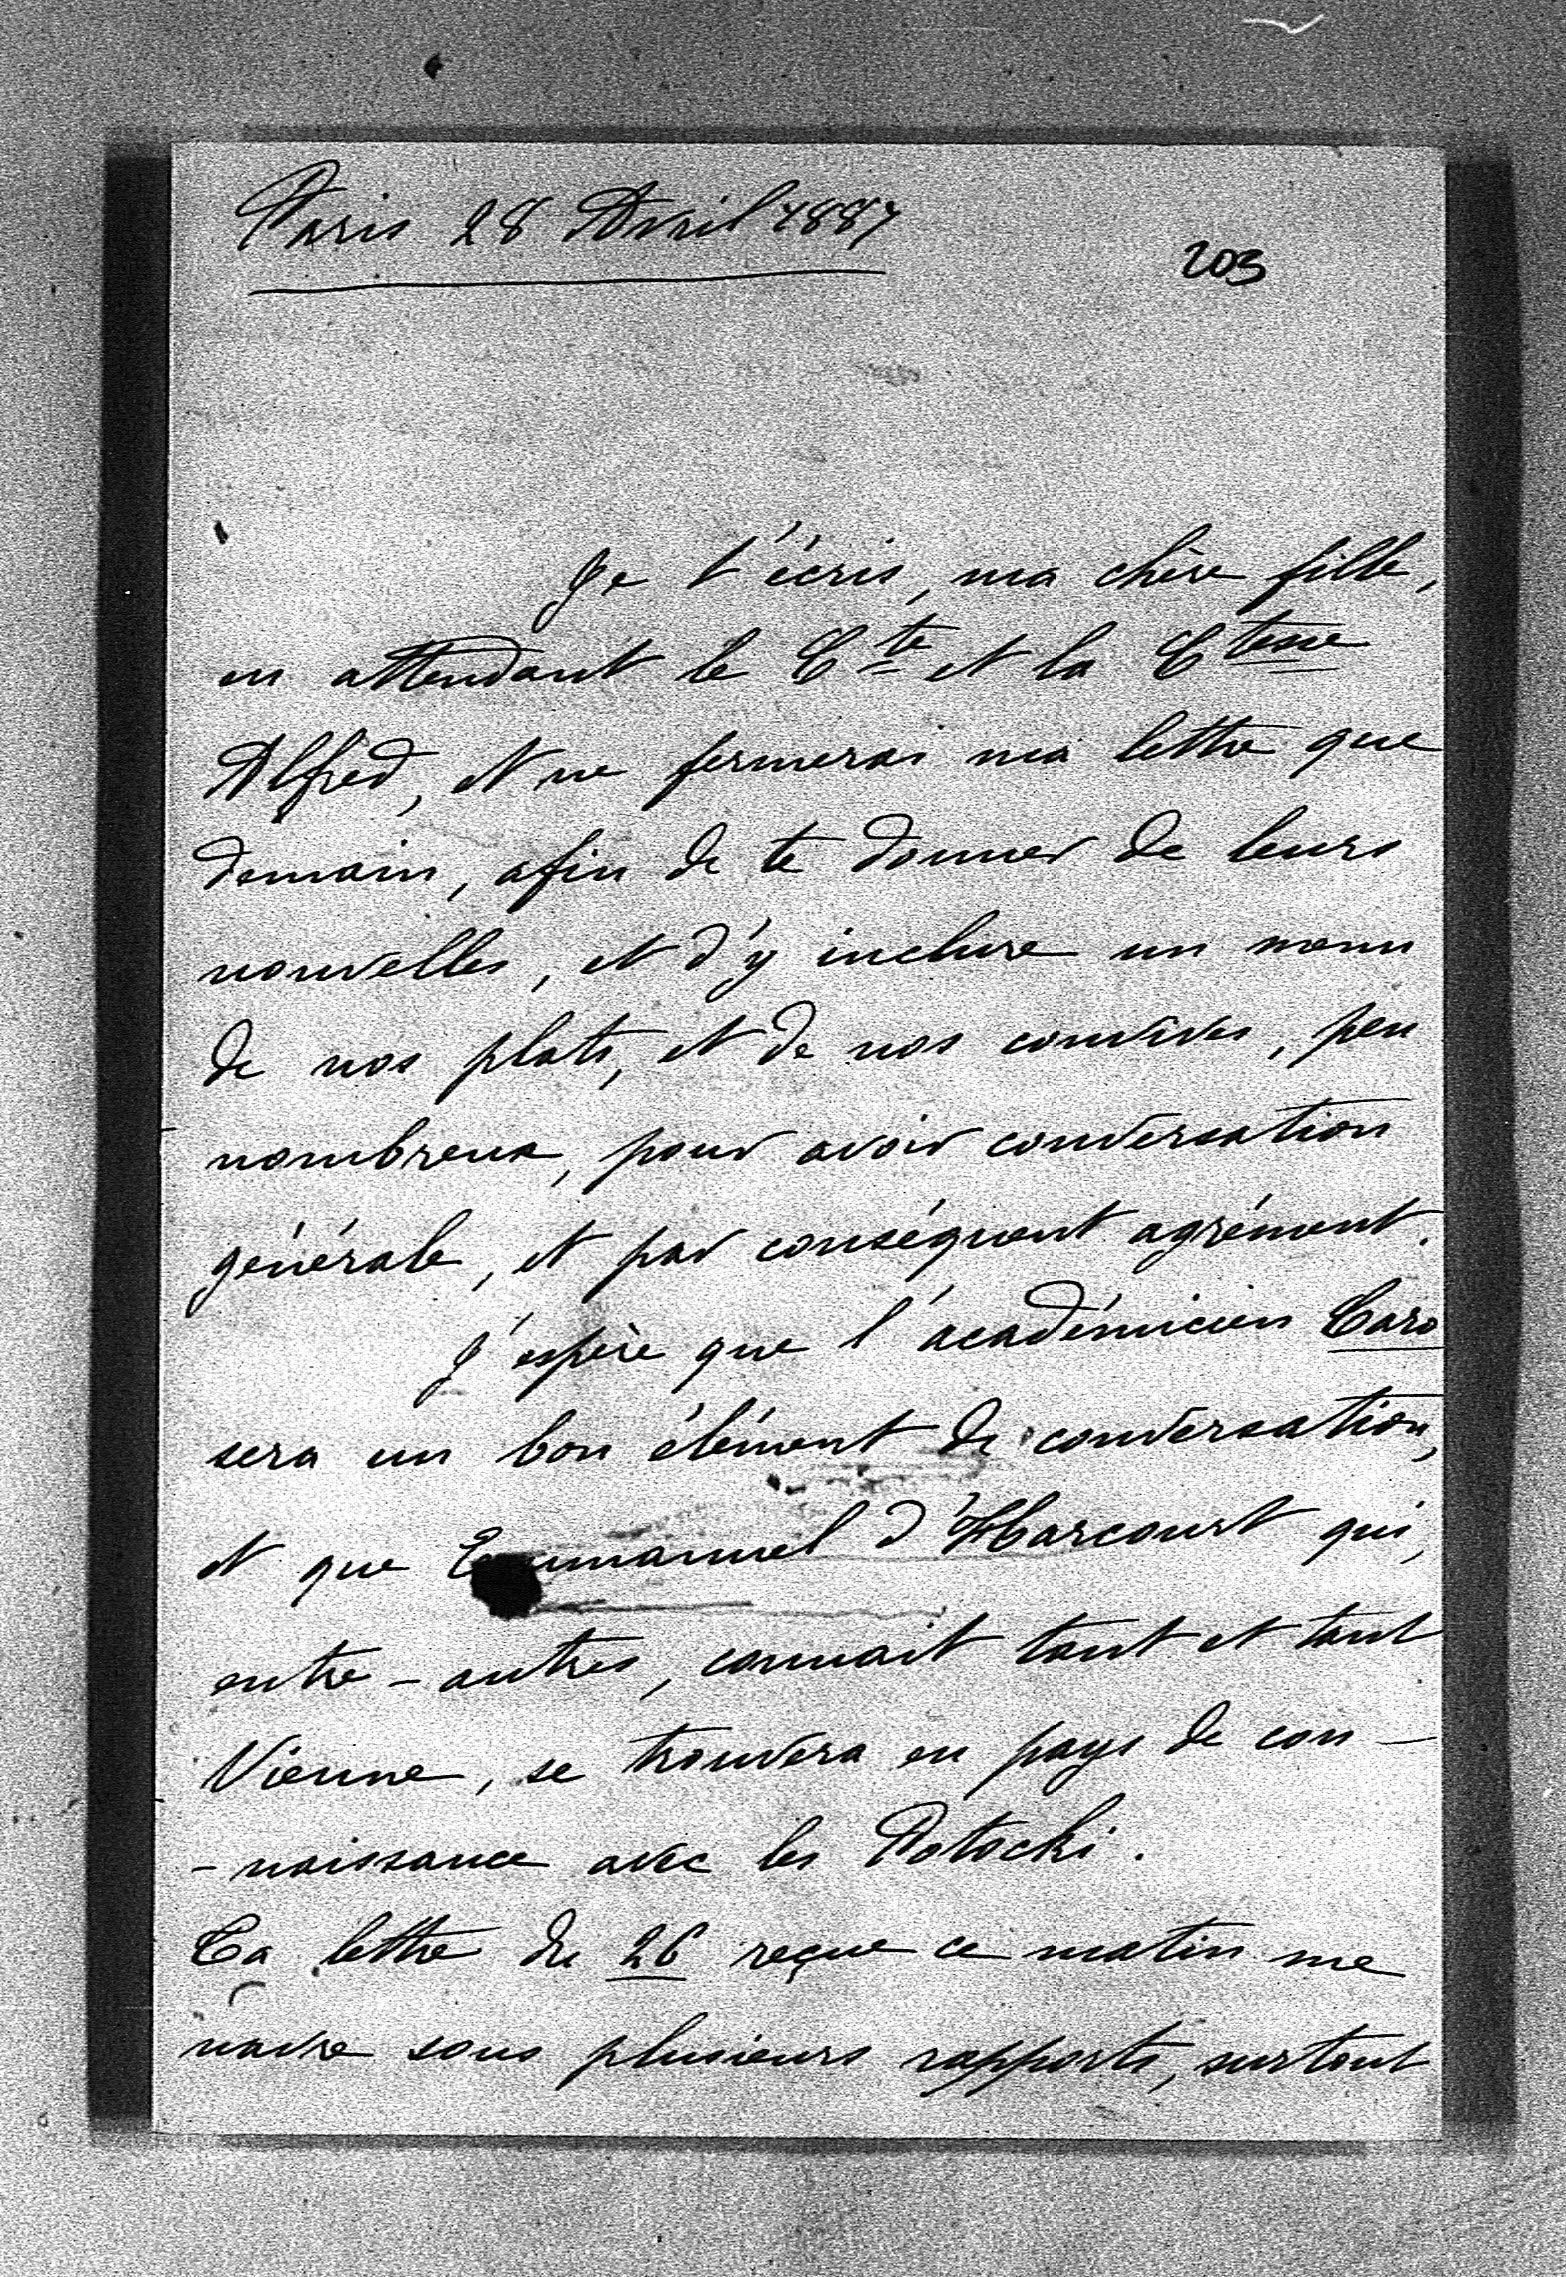 Paris 28 Avril 1887
203
Je t'écris, ma chère fille,
en attendant le Cte et la Ctesse
Alfred, et ne fermerai ma lettre que
demain, afin de te donner de leurs
nouvelles, et d'y inclure un menu
de nos plats, et de nos convives, peu
nombreux, pour avoir conversation
générale, et par conséquent agrément.
J'espère que l'académicien Caro
sera un bon élément de conversation,
et que Emmanuel d'Harcourt qui,
entre-autres, connait tant et tant
Vienne, se trouvera en pays de con-
-naissance avec les Potocki.
Ta lettre du 26 reçue ce matin me
navre sous plusieurs rapports, surtout